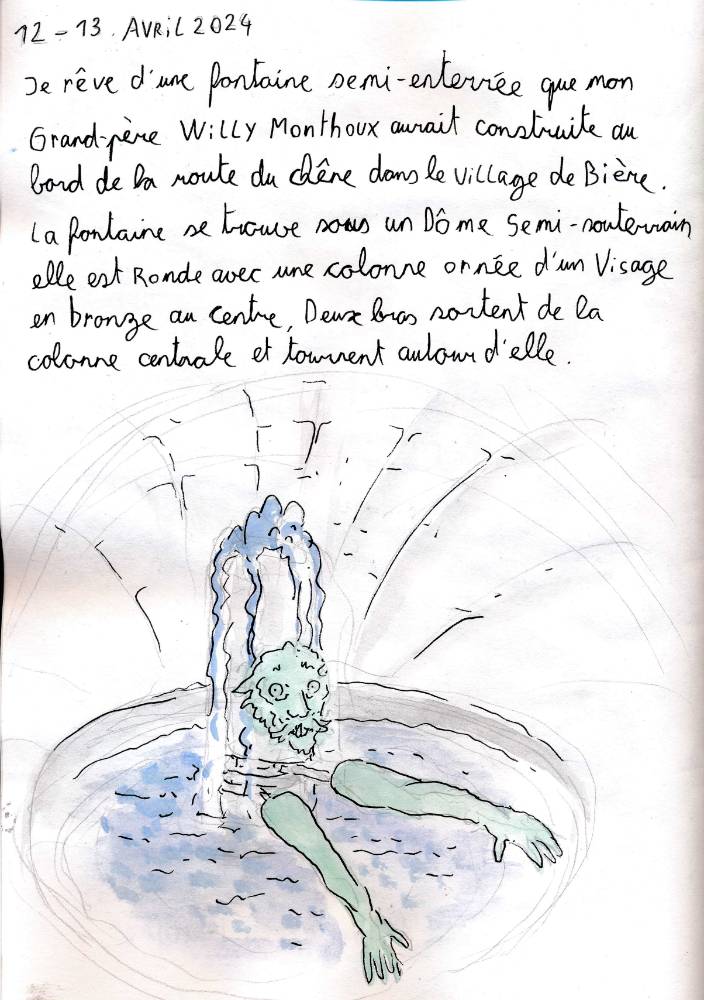 12 - 13. AVRiL 2024
Je rêve d'une fontaine semi-enterrée que mon
Grand-père WiLLY Monthoux aurait construite au
bord de la route du chêne dans le ViLLage de Bière.
La fontaine se trouve sous un Dôme Semi-souterrain
elle est Ronde avec une colonne ornée d'un Visage
en bronze au centre, Deux bras sortent de la
colonne centrale et tournent autour d'elle.